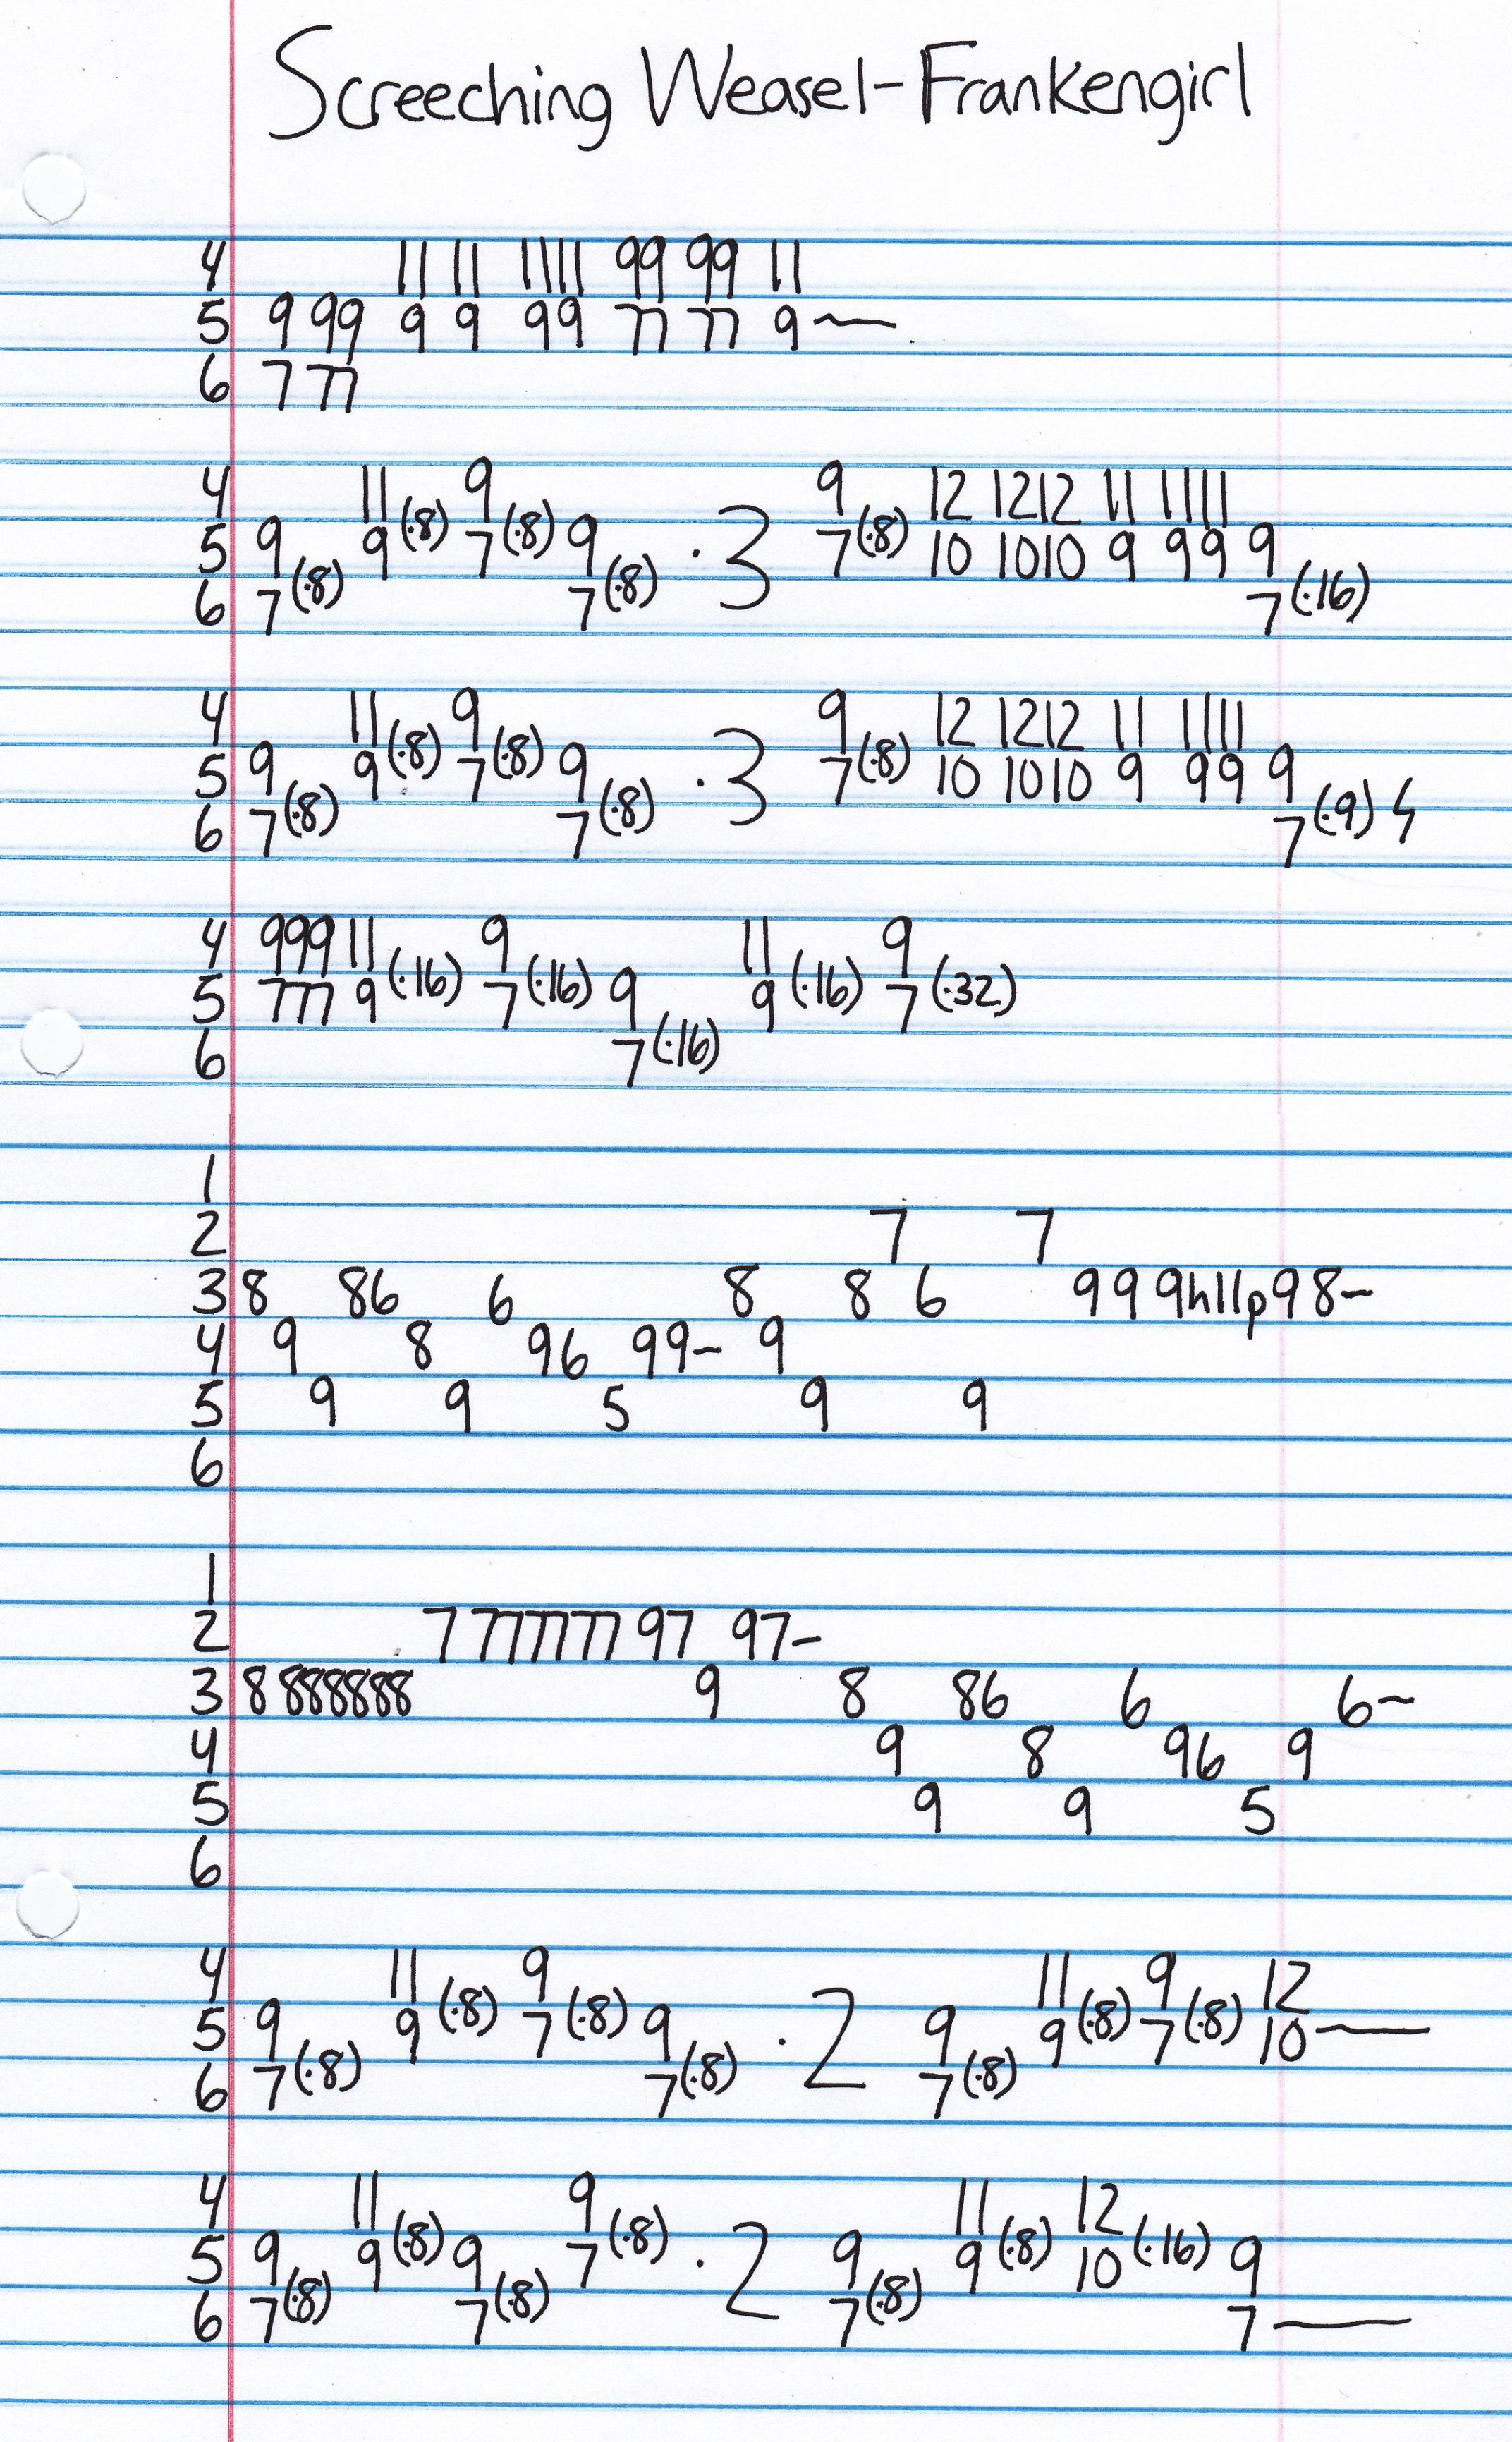 Screeching Weasel-Frankengirl
4 11 11 1111 99 99 11
5 9 99 9 9 99 77 77 9—
6 7 77
4 11(·8) 9(·8) 9 12 1212 11 1111
5 9 9 7 9 ·3 7(·8) 10 1010 9 99 9
6 7(·8) 7(·8) 7(·16)
4 11(·8) 9(·8) 9 12 1212 11 1111
5 9 9 7 9 ·3 7(·8) 10 1010 9 99 9
6 7(·8) 7(·8) 7(·9)
4 999 11 9 11 9
5 777 9(·16) 7(·16) 9 9(·16) 7(·32)
6 7(·16)
1
2 7 7
3 8 86 6 8 8 6 99 9h11p98-
4 9 8 96 99- 9
5 9 9 5 9 9
6
1
2 7 777777 97 97-
3 8 888888 9 8 86 6 6-
4 9 8 96 9
5 9 9 5
6
4 11 9 11 9 12
5 9 9(·8) 7(·8) 9 ·2 9 9(·8) 7(·8) 10—
6 7(·8) 7(·8) 7(·8)
4 11 9 11 12
5 9 9(·8) 9 7(·8) ·2 9 9(·8) 10(·16) 9
6 7(·8) 7(·8) 7(·8) 7—